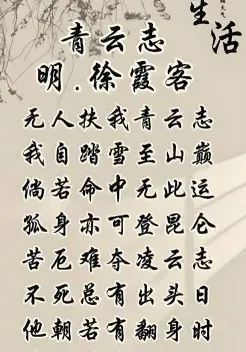 生活
青云志
明.徐霞客
无人扶我青云志
我自踏雪至山巅
倘若命中无此运
孤身亦可登昆仑
苦厄难夺凌云志
不死总有出头日
他朝若有翻身时